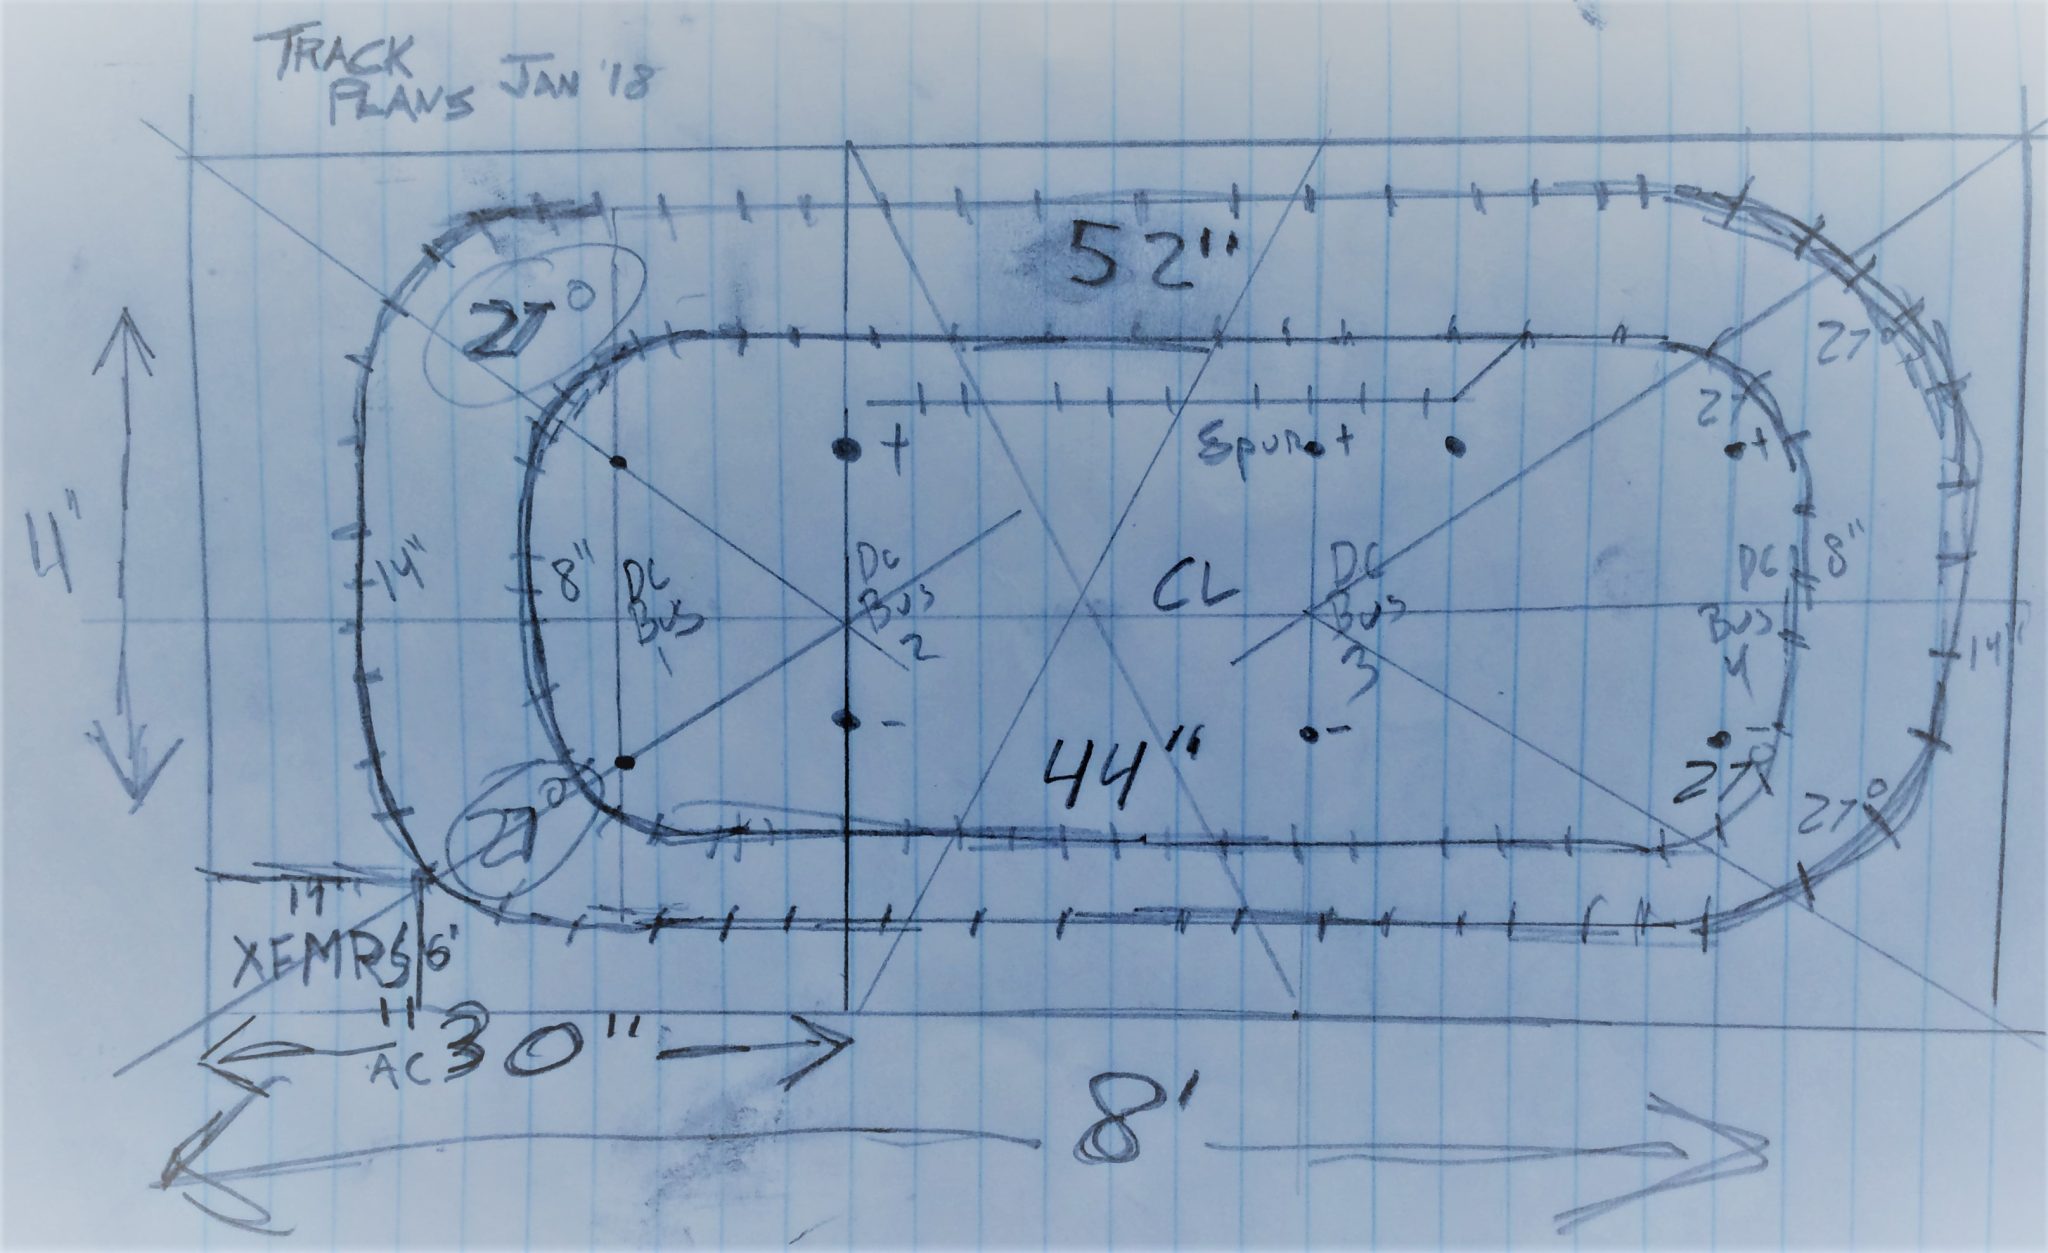 TRACK
PLANS JAN '18
52"
27°
27°
27
Spur +
+
+
4"
14"
8"
DC
BUS
1
DC
BUS
2
CL
DC
BUS
3
DC
BUS
4
8"
14"
-
-
-
44"
27°
27°
27°
14"
XFMRS 6'
"30"
AC
8'